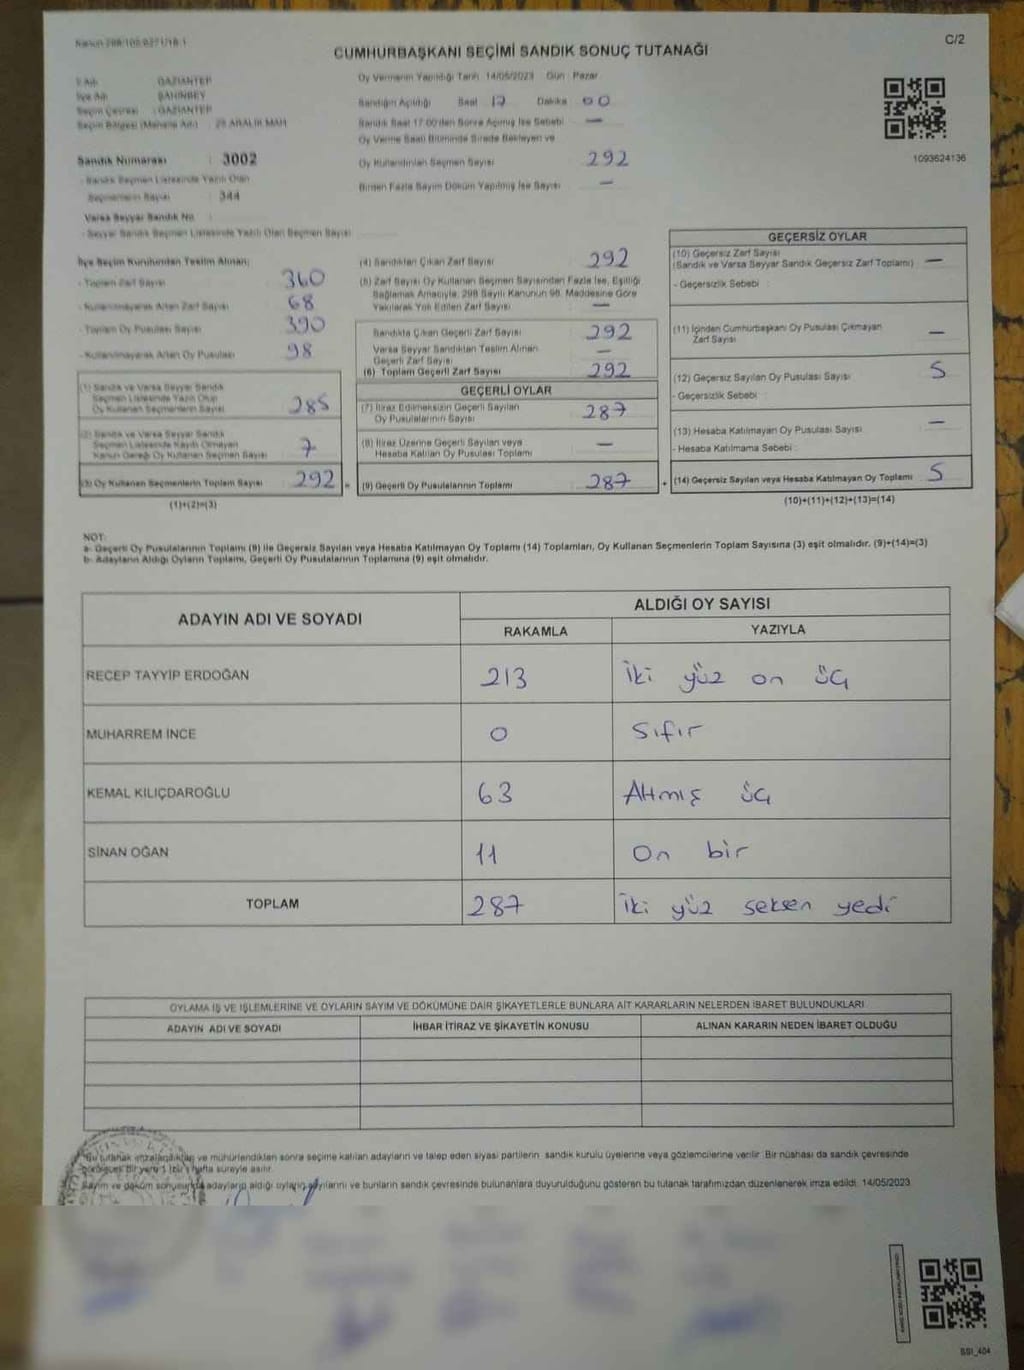 C/2
CUMHURBAŞKANI SEÇİMİ SANDIK SONUÇ TUTANAĞI
İl Adı : GAZİANTEP
İlçe Adı : ŞAHİNBEY
Seçim Çevresi : GAZİANTEP
Seçim Bölgesi (Mahalle Adı) : 25 ARALIK MAH.
Sandık Numarası : 3002
- Sandık Seçmen Listesinde Yazılı Olan
Seçmenlerin Sayısı : 344
Varsa Seyyar Sandık No :
- Seyyar Sandık Seçmen Listesinde Yazılı Olan Seçmen Sayısı
Oy Vermenin Yapıldığı Tarih 14/05/2023 Gün : Pazar
Sandığın Açıldığı Saat 17 Dakika 00
Sandık Saat 17:00'den Sonra Açılmış İse Sebebi —
Oy Verme Saati Bitiminde Sırada Bekleyen ve
Oy Kullandırılan Seçmen Sayısı 292
Birden Fazla Sayım Döküm Yapılmış İse Sayısı —
1093624136
İlçe Seçim Kurulundan Teslim Alınan;
- Toplam Zarf Sayısı 360
- Kullanılmayarak Artan Zarf Sayısı 68
- Toplam Oy Pusulası Sayısı 390
- Kullanılmayarak Artan Oy Pusulası 98
(1) Sandık ve Varsa Seyyar Sandık
Seçmen Listesinde Yazılı Olup
Oy Kullanan Seçmenlerin Sayısı 285
(2) Sandık ve Varsa Seyyar Sandık
Seçmen Listesinde Kayıtlı Olmayan
Kanun Gereği Oy Kullanan Seçmen Sayısı 7
(3) Oy Kullanan Seçmenlerin Toplam Sayısı 292 =
(1)+(2)=(3)
(4) Sandıktan Çıkan Zarf Sayısı 292
(5) Zarf Sayısı Oy Kullanan Seçmen Sayısından Fazla İse, Eşitliği
Sağlamak Amacıyla, 298 Sayılı Kanunun 98. Maddesine Göre
Yakılarak Yok Edilen Zarf Sayısı —
Sandıkta Çıkan Geçerli Zarf Sayısı 292
Varsa Seyyar Sandıktan Teslim Alınan
Geçerli Zarf Sayısı —
(6) Toplam Geçerli Zarf Sayısı 292
GEÇERLİ OYLAR
(7) İtiraz Edilmeksizin Geçerli Sayılan
Oy Pusulalarının Sayısı 287
(8) İtiraz Üzerine Geçerli Sayılan veya
Hesaba Katılan Oy Pusulası Toplamı —
(9) Geçerli Oy Pusulalarının Toplamı 287 +
GEÇERSİZ OYLAR
(10) Geçersiz Zarf Sayısı
(Sandık ve Varsa Seyyar Sandık Geçersiz Zarf Toplamı) —
- Geçersizlik Sebebi :
(11) İçinden Cumhurbaşkanı Oy Pusulası Çıkmayan
Zarf Sayısı —
(12) Geçersiz Sayılan Oy Pusulası Sayısı 5
- Geçersizlik Sebebi :
(13) Hesaba Katılmayan Oy Pusulası Sayısı —
- Hesaba Katılmama Sebebi :
(14) Geçersiz Sayılan veya Hesaba Katılmayan Oy Toplamı 5
(10)+(11)+(12)+(13)=(14)
NOT:
a- Geçerli Oy Pusulalarının Toplamı (9) ile Geçersiz Sayılan veya Hesaba Katılmayan Oy Toplamı (14) Toplamları, Oy Kullanan Seçmenlerin Toplam Sayısına (3) eşit olmalıdır. (9)+(14)=(3)
b- Adayların Aldığı Oyların Toplamı, Geçerli Oy Pusulalarının Toplamına (9) eşit olmalıdır.
ADAYIN ADI VE SOYADI
ALDIĞI OY SAYISI
RAKAMLA YAZIYLA
RECEP TAYYİP ERDOĞAN 213 İki yüz on üç
MUHARREM İNCE 0 Sıfır
KEMAL KILIÇDAROĞLU 63 Altmış üç
SİNAN OĞAN 11 On bir
TOPLAM 287 İki yüz seksen yedi
OYLAMA İŞ VE İŞLEMLERİNE VE OYLARIN SAYIM VE DÖKÜMÜNE DAİR ŞİKAYETLERLE BUNLARA AİT KARARLARIN NELERDEN İBARET BULUNDUKLARI
ADAYIN ADI VE SOYADI İHBAR İTİRAZ VE ŞİKAYETİN KONUSU ALINAN KARARIN NEDEN İBARET OLDUĞU
Bu tutanak imzalandıktan ve mühürlendikten sonra seçime katılan adayların ve talep eden siyasi partilerin sandık kurulu üyelerine veya gözlemcilerine verilir. Bir nüshası da sandık çevresinde
görülecek bir yere 1 (bir) hafta süreyle asılır.
Sayım ve döküm sonucunda adayların aldığı oyların sayılarını ve bunların sandık çevresinde bulunanlara duyurulduğunu gösteren bu tutanak tarafımızdan düzenlenerek imza edildi. 14/05/2023
SSI_404